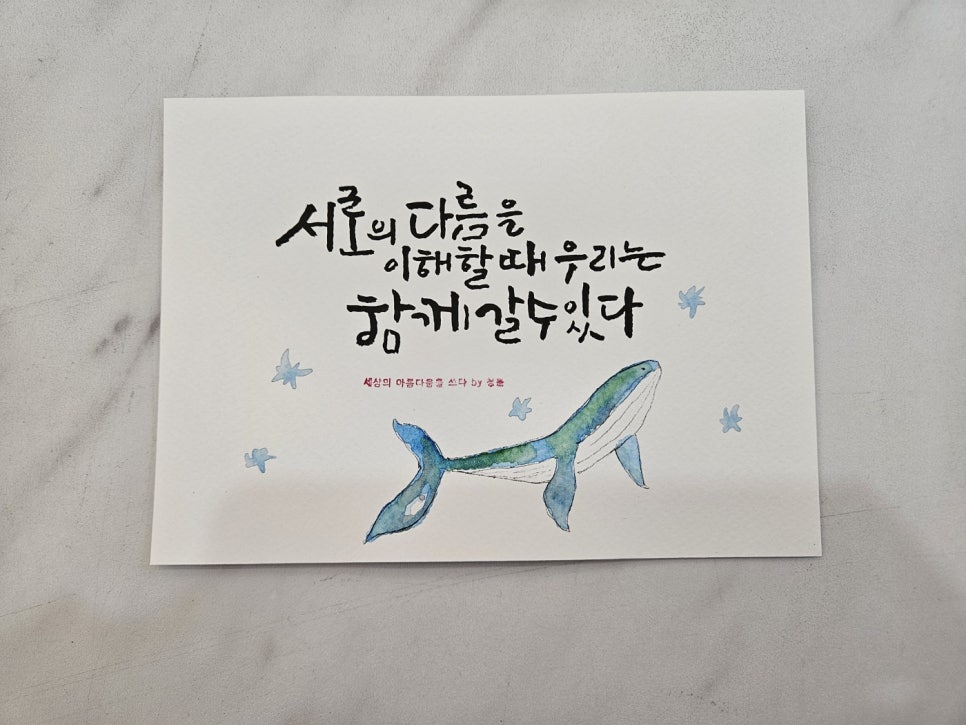 서로의 다름을
이해할 때 우리는
함께 갈 수 있다
세상의 아름다움을 쓰다 by